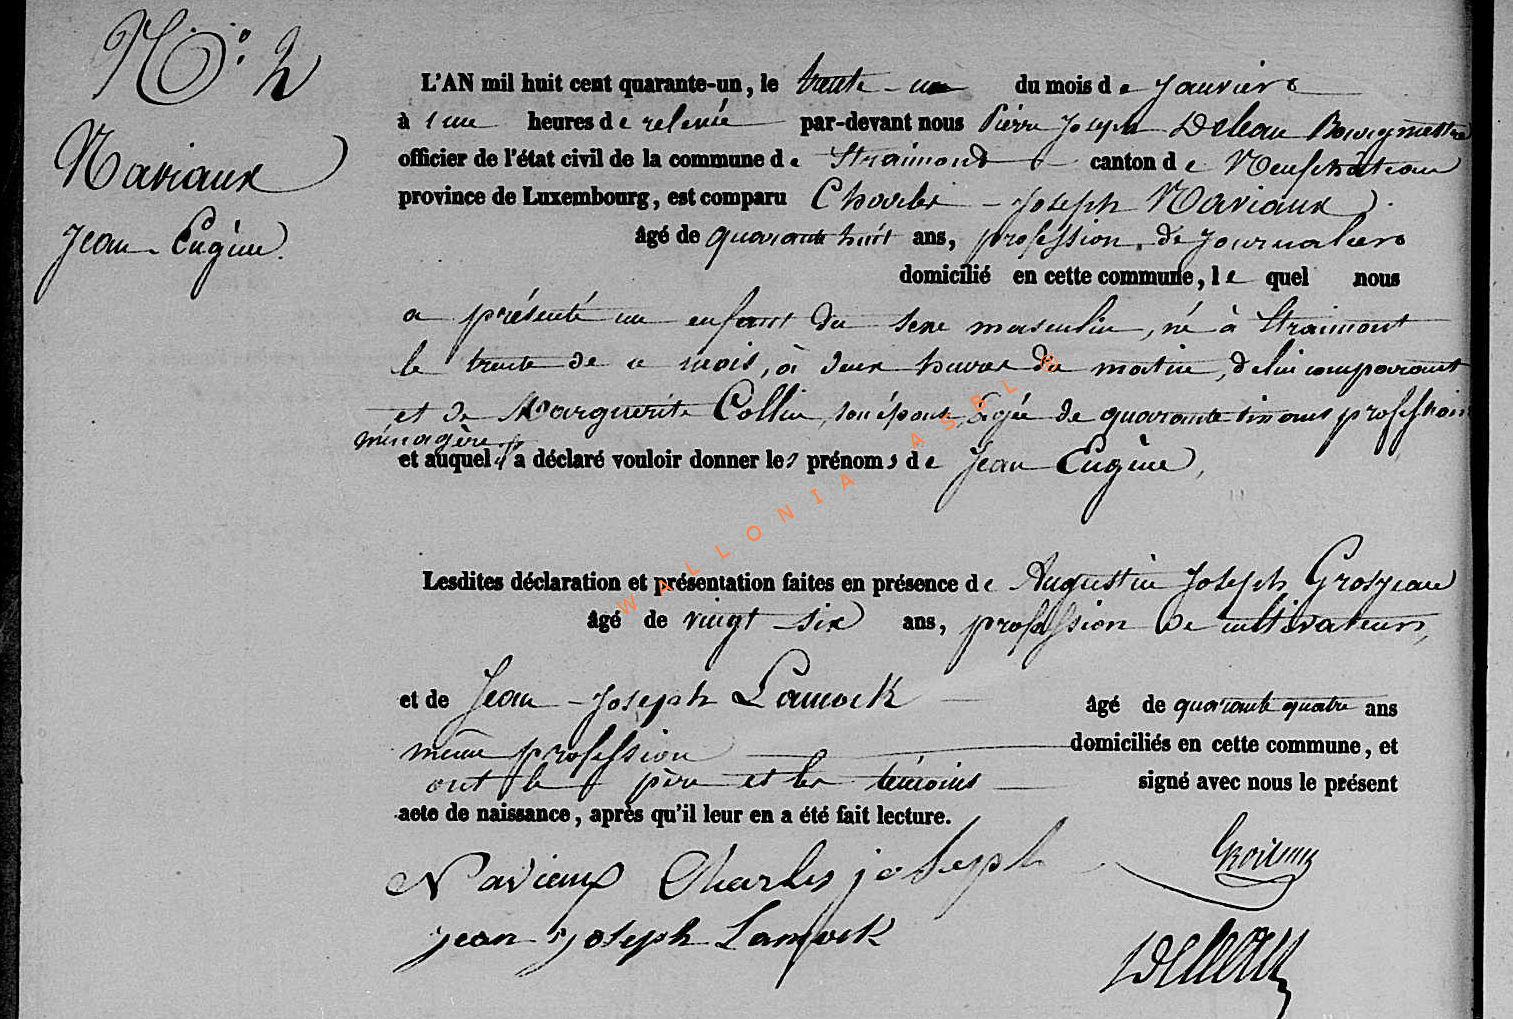 N.o 2
Naviaux
Jean-Eugène.
L'AN mil huit cent quarante-un, le trente-un du mois de Janvier
à une heures de relevée par-devant nous Pierre Joseph Deleau Bourgmestre
officier de l'état civil de la commune de Straimont canton de Neufchâteau
province de Luxembourg, est comparu Charles-Joseph Naviaux
âgé de quarante huit ans, profession de journalier
domicilié en cette commune, lequel nous
a présenté un enfant du sexe masculin, né à Straimont
le trente de ce mois, à deux heures du matin, de lui comparant
et de Marguerite Collin, son épouse, âgée de quarante six ans profession
ménagère
et auquel il a déclaré vouloir donner les prénoms de Jean Eugène,
Lesdites déclaration et présentation faites en présence de Augustin Joseph Grosjean
âgé de vingt-six ans, profession de cultivateur,
et de Jean-Joseph Lamock âgé de quarante quatre ans
même profession domiciliés en cette commune, et
ont le père et les témoins signé avec nous le présent
acte de naissance, après qu'il leur en a été fait lecture.
Naviaux Charles joseph
jean joseph Lamock
Deleau
WALLONIA ASBL ©